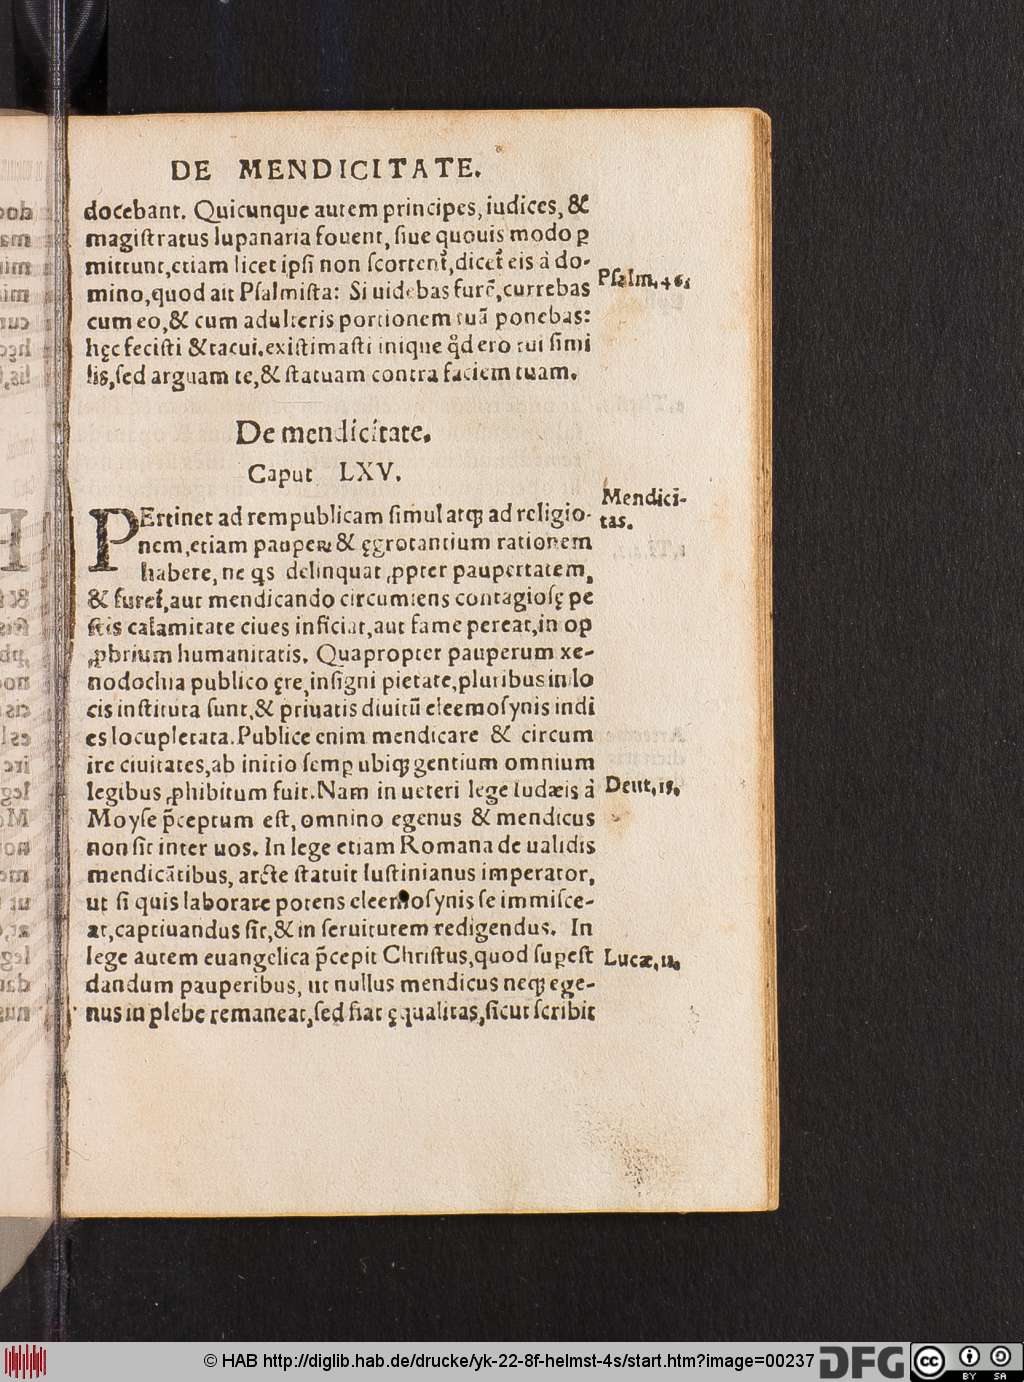 DE MENDICITATE.
docebant. Quicunque autem principes, iudices, &
magiſtratus lupanaria fouent, ſiue quouis modo ꝑ
mittunt, etiam licet ipſi non ſcortent᷑, dicet᷑ eis à do-
mino, quod ait Pſalmiſta: Si uidebas furē, currebas
Pſalm. 46.
cum eo, & cum adulteris portionem tuā ponebas:
hęc feciſti & tacui. exiſtimaſti inique ꝙ̃d ero tui ſimi
lis, ſed arguam te, & ſtatuam contra faciem tuam.
De mendicitate.
Caput LXV.
PErtinet ad rempublicam ſimul atqꝫ ad religio-
Mendici-
tas.
nem, etiam pauperꝝ & ęgrotantium rationem
habere, ne ꝗs delinquat ꝓpter paupertatem,
& furet᷑, aut mendicando circumiens contagioſę pe
ſtis calamitate ciues inficiat, aut fame pereat, in op
ꝓbrium humanitatis. Quapropter pauperum xe-
nodochia publico ęre, inſigni pietate, pluribus in lo
cis inſtituta ſunt, & priuatis diuitū eleemoſynis indi
es locupletata. Publice enim mendicare & circum
ire ciuitates, ab initio ſemꝑ ubiqꝫ gentium omnium
legibus ꝓhibitum fuit. Nam in ueteri lege Iudæis à
Deut. 15.
Moyſe p̃ceptum eſt, omnino egenus & mendicus
non ſit inter uos. In lege etiam Romana de ualidis
mendicātibus, arcte ſtatuit Iuſtinianus imperator,
ut ſi quis laborare potens eleemoſynis ſe immiſce-
at, captiuandus ſit, & in ſeruitutem redigendus. In
lege autem euangelica p̃cepit Chriſtus, quod ſuꝑeſt
Lucæ. 11.
dandum pauperibus, ut nullus mendicus neqꝫ ege-
nus in plebe remaneat, ſed fiat ęqualitas, ſicut ſcribit
© HAB http://diglib.hab.de/drucke/yk-22-8f-helmst-4s/start.htm?image=00237
DFG
cc BY SA